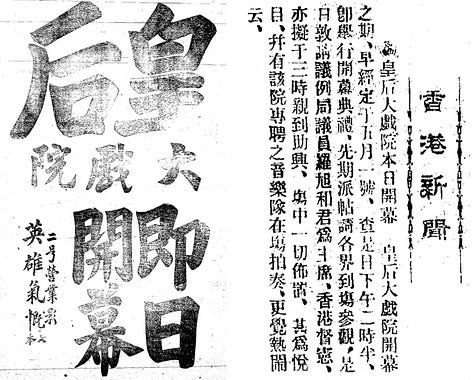 香港新聞
皇后大戲院本日開幕　皇后大戲院開幕
之期、早經定于五月一號、查是日下午二時半、
即舉行開幕典禮、先期派帖請各界到塲參觀、是
日敦請議例局議員羅旭和君爲主席、香港督憲、
亦擬于三時親到助興、塲中一切佈置、甚爲悅
目、幷有該院專聘之音樂隊在塲拍奏、更覺熱鬧
云、
皇后
大戲院
即日
開幕
二号營業影
英雄氣慨